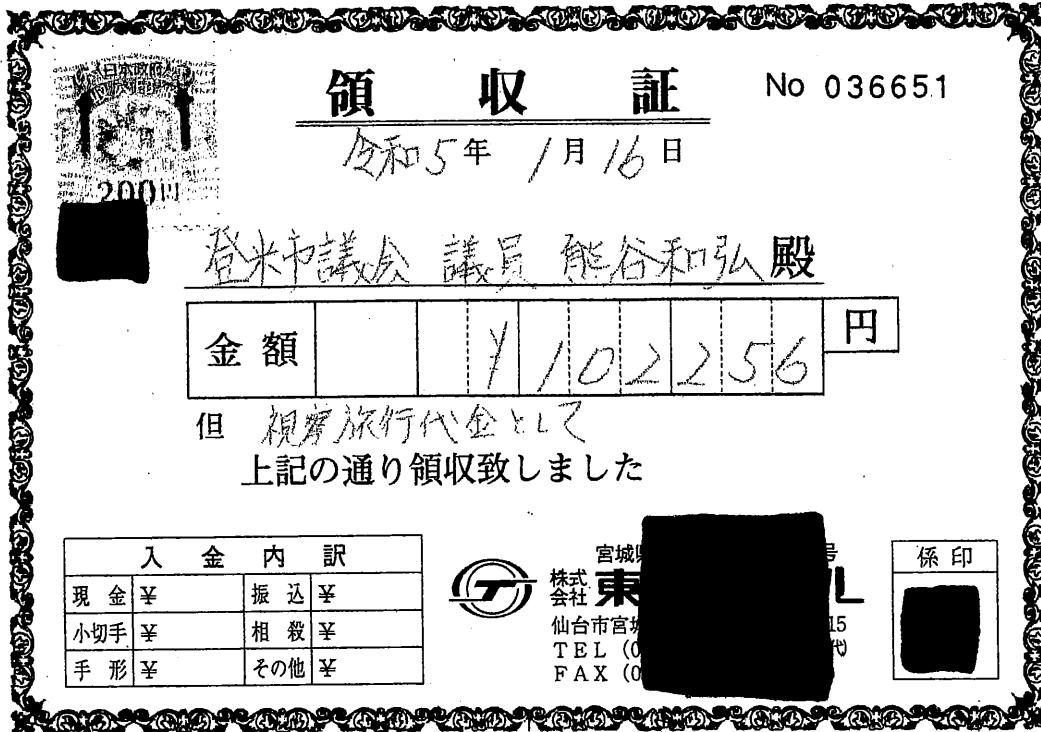 日本政府
200円
領収証
No 036651
令和5年1月16日
登米市議会 議員 熊谷和弘殿
金額 ¥102256円
但 視察旅行代金として
上記の通り領収致しました
入金内訳
現金 ¥ 振込 ¥
小切手 ¥ 相殺 ¥
手形 ¥ その他 ¥
宮城 号
株式会社 東 ル
仙台市宮城 15
TEL (0 代)
FAX (0
係印